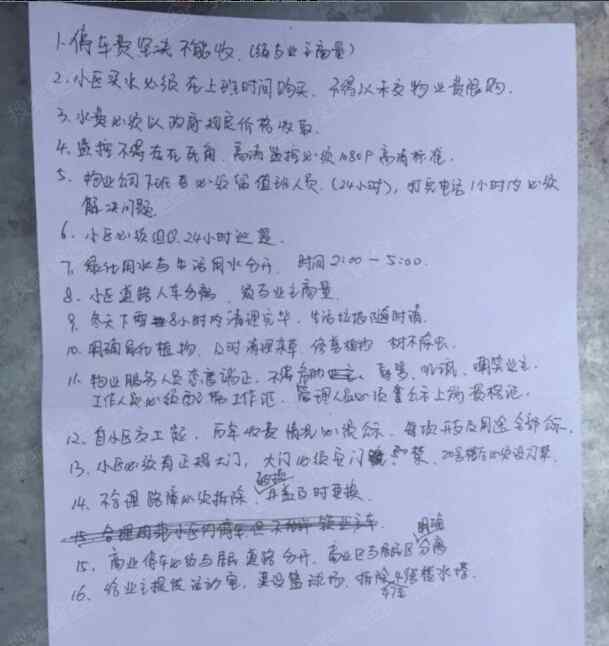 1. 停车费坚决不能收.(须与业主商量)
2. 小区买水必须在上班时间购买、不得以未交物业费限购.
3. 水费必须以政府规定价格收取.
4. 监控不得存在死角、高清监控必须1080P高清标准.
5. 物业公司下班后必须留值班人员.(24小时),打完电话1小时内必须
解决问题.
6. 小区必须但仅24小时巡逻.
7. 绿化用水与生活用水分开、时间2:00-5:00.
8. 小区道路人车分离、须与业主商量.
9. 冬天下雪8小时内清理完毕、生活垃圾随时清.
10. 明确绿化植物、及时清理杂草、修剪植物 树木除虫.
11. 物业服务人员态度端正、不得 辱骂、嘲讽、嘲笑业主、
工作人员必须 工作证、管理人员必须 公示上岗资格证.
12. 自小区方工起、历年收费情况必须公示、每项开支及用途全部公示.
13. 小区必须有正规大门、大门必须 门禁、 必须设门禁.
14. 不合理路障必须拆除、破损井盖及时更换.
15. 商业停车必须与居民道路分开、商业区与居民区明确分离
16. 给业主提供活动室、建设篮球场、拆除4号楼水塔.